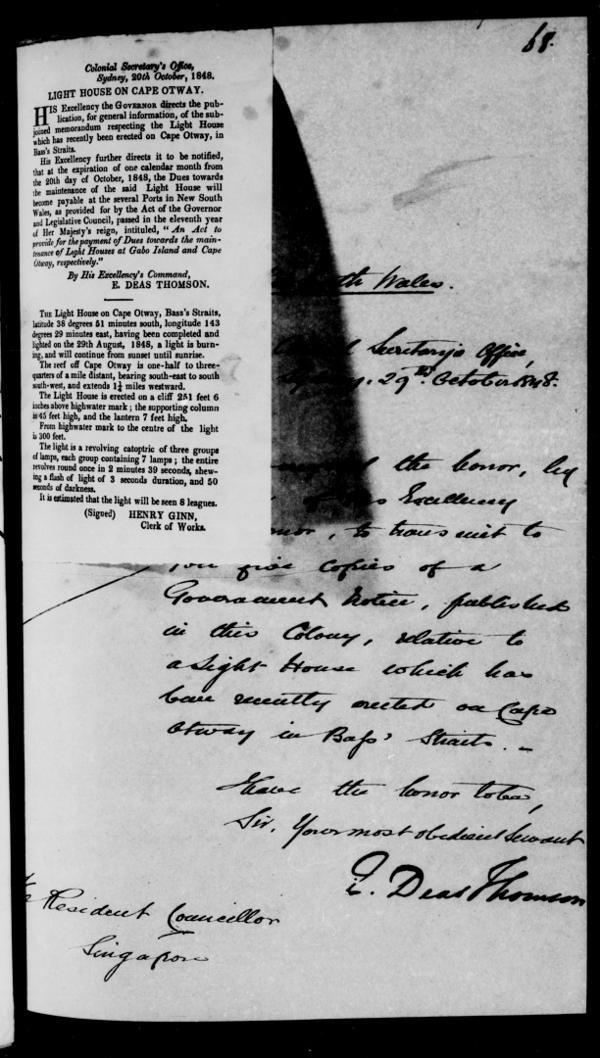 68.
Colonial Secretary's Office,
Sydney, 20th October, 1848.
LIGHT HOUSE ON CAPE OTWAY.
HIS Excellency the GOVERNOR directs the pub-
lication, for general information, of the sub-
joined memorandum respecting the Light House
which has recently been erected on Cape Otway, in
Bass's Straits.
His Excellency further directs it to be notified,
that at the expiration of one calendar month from
the 20th day of October, 1848, the Dues towards
the maintenance of the said Light House will
become payable at the several Ports in New South
Wales, as provided for by the Act of the Governor
and Legislative Council, passed in the eleventh year
of Her Majesty's reign, intituled, "An Act to
provide for the payment of Dues towards the main-
tenance of Light Houses at Gabo Island and Cape
Otway, respectively."
By His Excellency's Command,
E. DEAS THOMSON.
THE Light House on Cape Otway, Bass's Straits,
latitude 38 degrees 51 minutes south, longitude 143
degrees 29 minutes east, having been completed and
lighted on the 29th August, 1848, a light is burn-
ing, and will continue from sunset until sunrise.
The reef off Cape Otway is one-half to three-
quarters of a mile distant, bearing south-east to south
south-west, and extends 1¼ miles westward.
The Light House is erected on a cliff 251 feet 6
inches above highwater mark; the supporting column
is 45 feet high, and the lantern 7 feet high.
From highwater mark to the centre of the light
is 300 feet.
The light is a revolving catoptric of three groups
of lamps, each group containing 7 lamps; the entire
revolves round once in 2 minutes 39 seconds, shew-
ing a flash of light of 3 seconds duration, and 50
seconds of darkness.
It is estimated that the light will be seen 8 leagues.
(Signed) HENRY GINN,
Clerk of Works.
th Wales.
Secretary's Office,
29th October 1848.
the honor, by
Excellency
nor, to transmit to
you five copies of a
Government Notice, published
in this Colony, relative to
a Light House which has
been recently erected on Cape
Otway in Bass' Straits. -
I have the honor to be,
Sir, Your most obedient Servant
E. Deas Thomson
Resident Councillor
Singapore